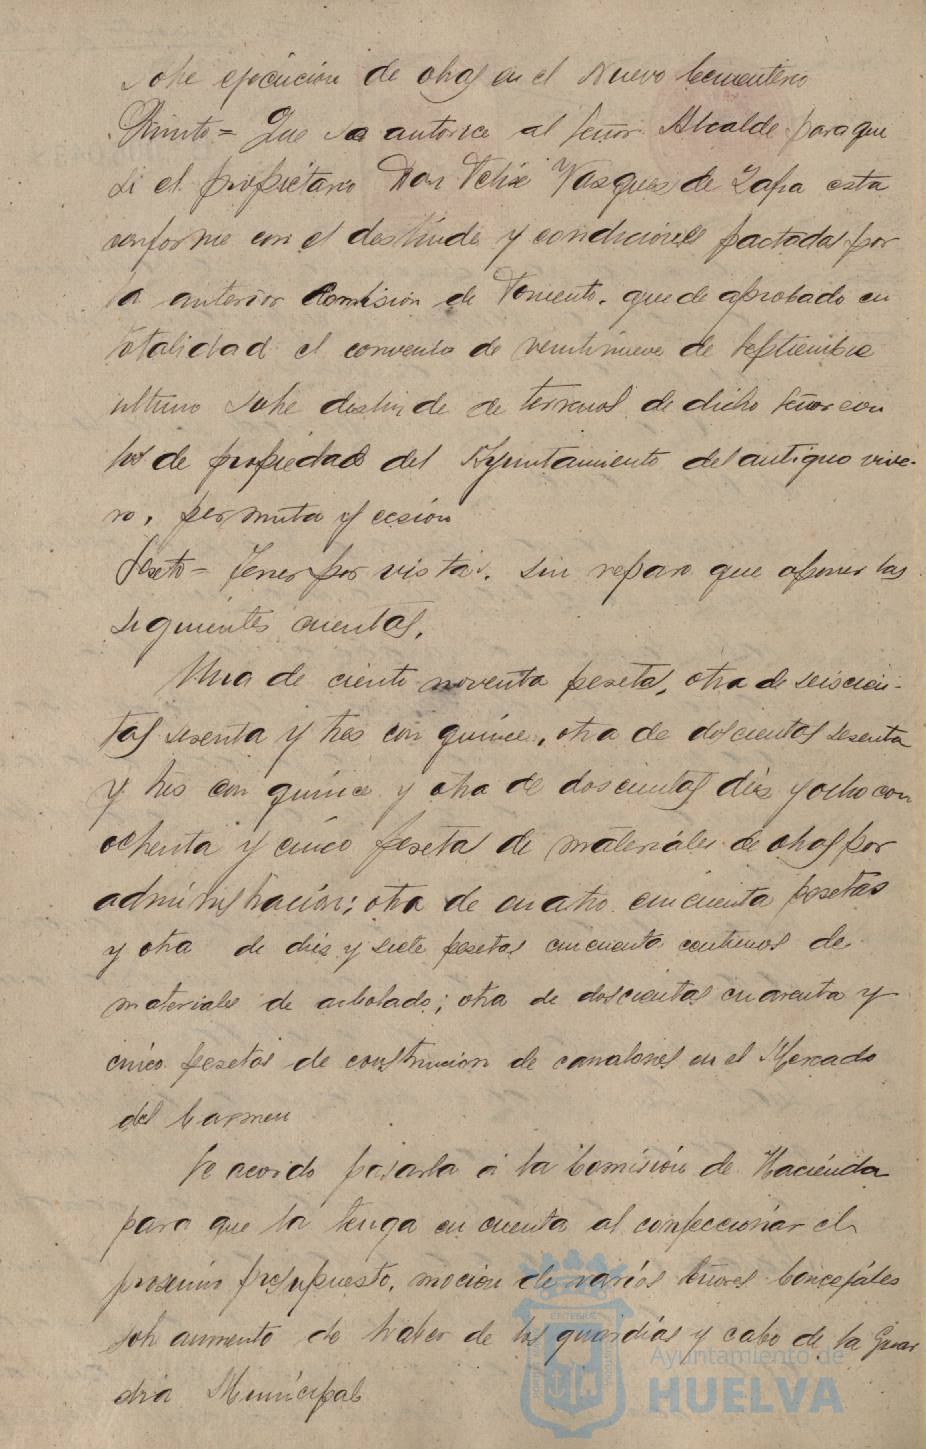 sobre ejecución de obras en el Nuevo Cementerio
Quinto= Que se autorice al Señor Alcalde para que
si el propietario Don Felix Vazquez de Zafra esta
conforme con el deslinde y condiciones pactadas por
la anterior Comisión de Fomento. quede aprobado en
totalidad el convenio de veintinueve de Septiembre
ultimo sobre deslinde de terrenos de dicho Señor con
los de propiedad del Ayuntamiento del antiguo vive-
ro, permuta y cesión
Sexto= Tener por vistas. sin reparo que oponer las
siguientes cuentas.
Una de ciento noventa pesetas, otra de seiscien-
tas sesenta y tres con quince, otra de doscientas sesenta
y tres con quince y otra de doscientas diez y ocho con
ochenta y cinco pesetas de materiales de obras por
administración; otra de cuatro cincuenta pesetas
y otra de diez y siete pesetas cincuenta centimos de
materiales de arbolado; otra de doscientas cuarenta y
cinco pesetas de construcion de canalones en el Mercado
del Carmen
Se acordo pasarla a la Comisión de Hacienda
para que la tenga en cuenta al confeccionar el
proximo presupuesto, moción de varios Señores Concejales
sobre aumento de haber de los guardias y cabo de la Guar
dia Municipal
Ayuntamiento de
HUELVA